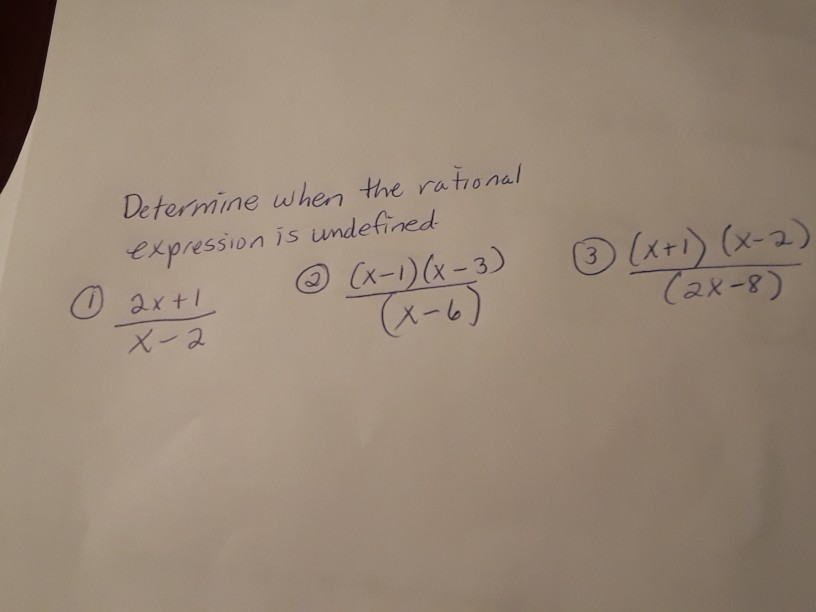 Determine when the rational
expression is undefined.
① 2x+1 / x-2
② (x-1)(x-3) / (x-6)
③ (x+1)(x-2) / (2x-8)